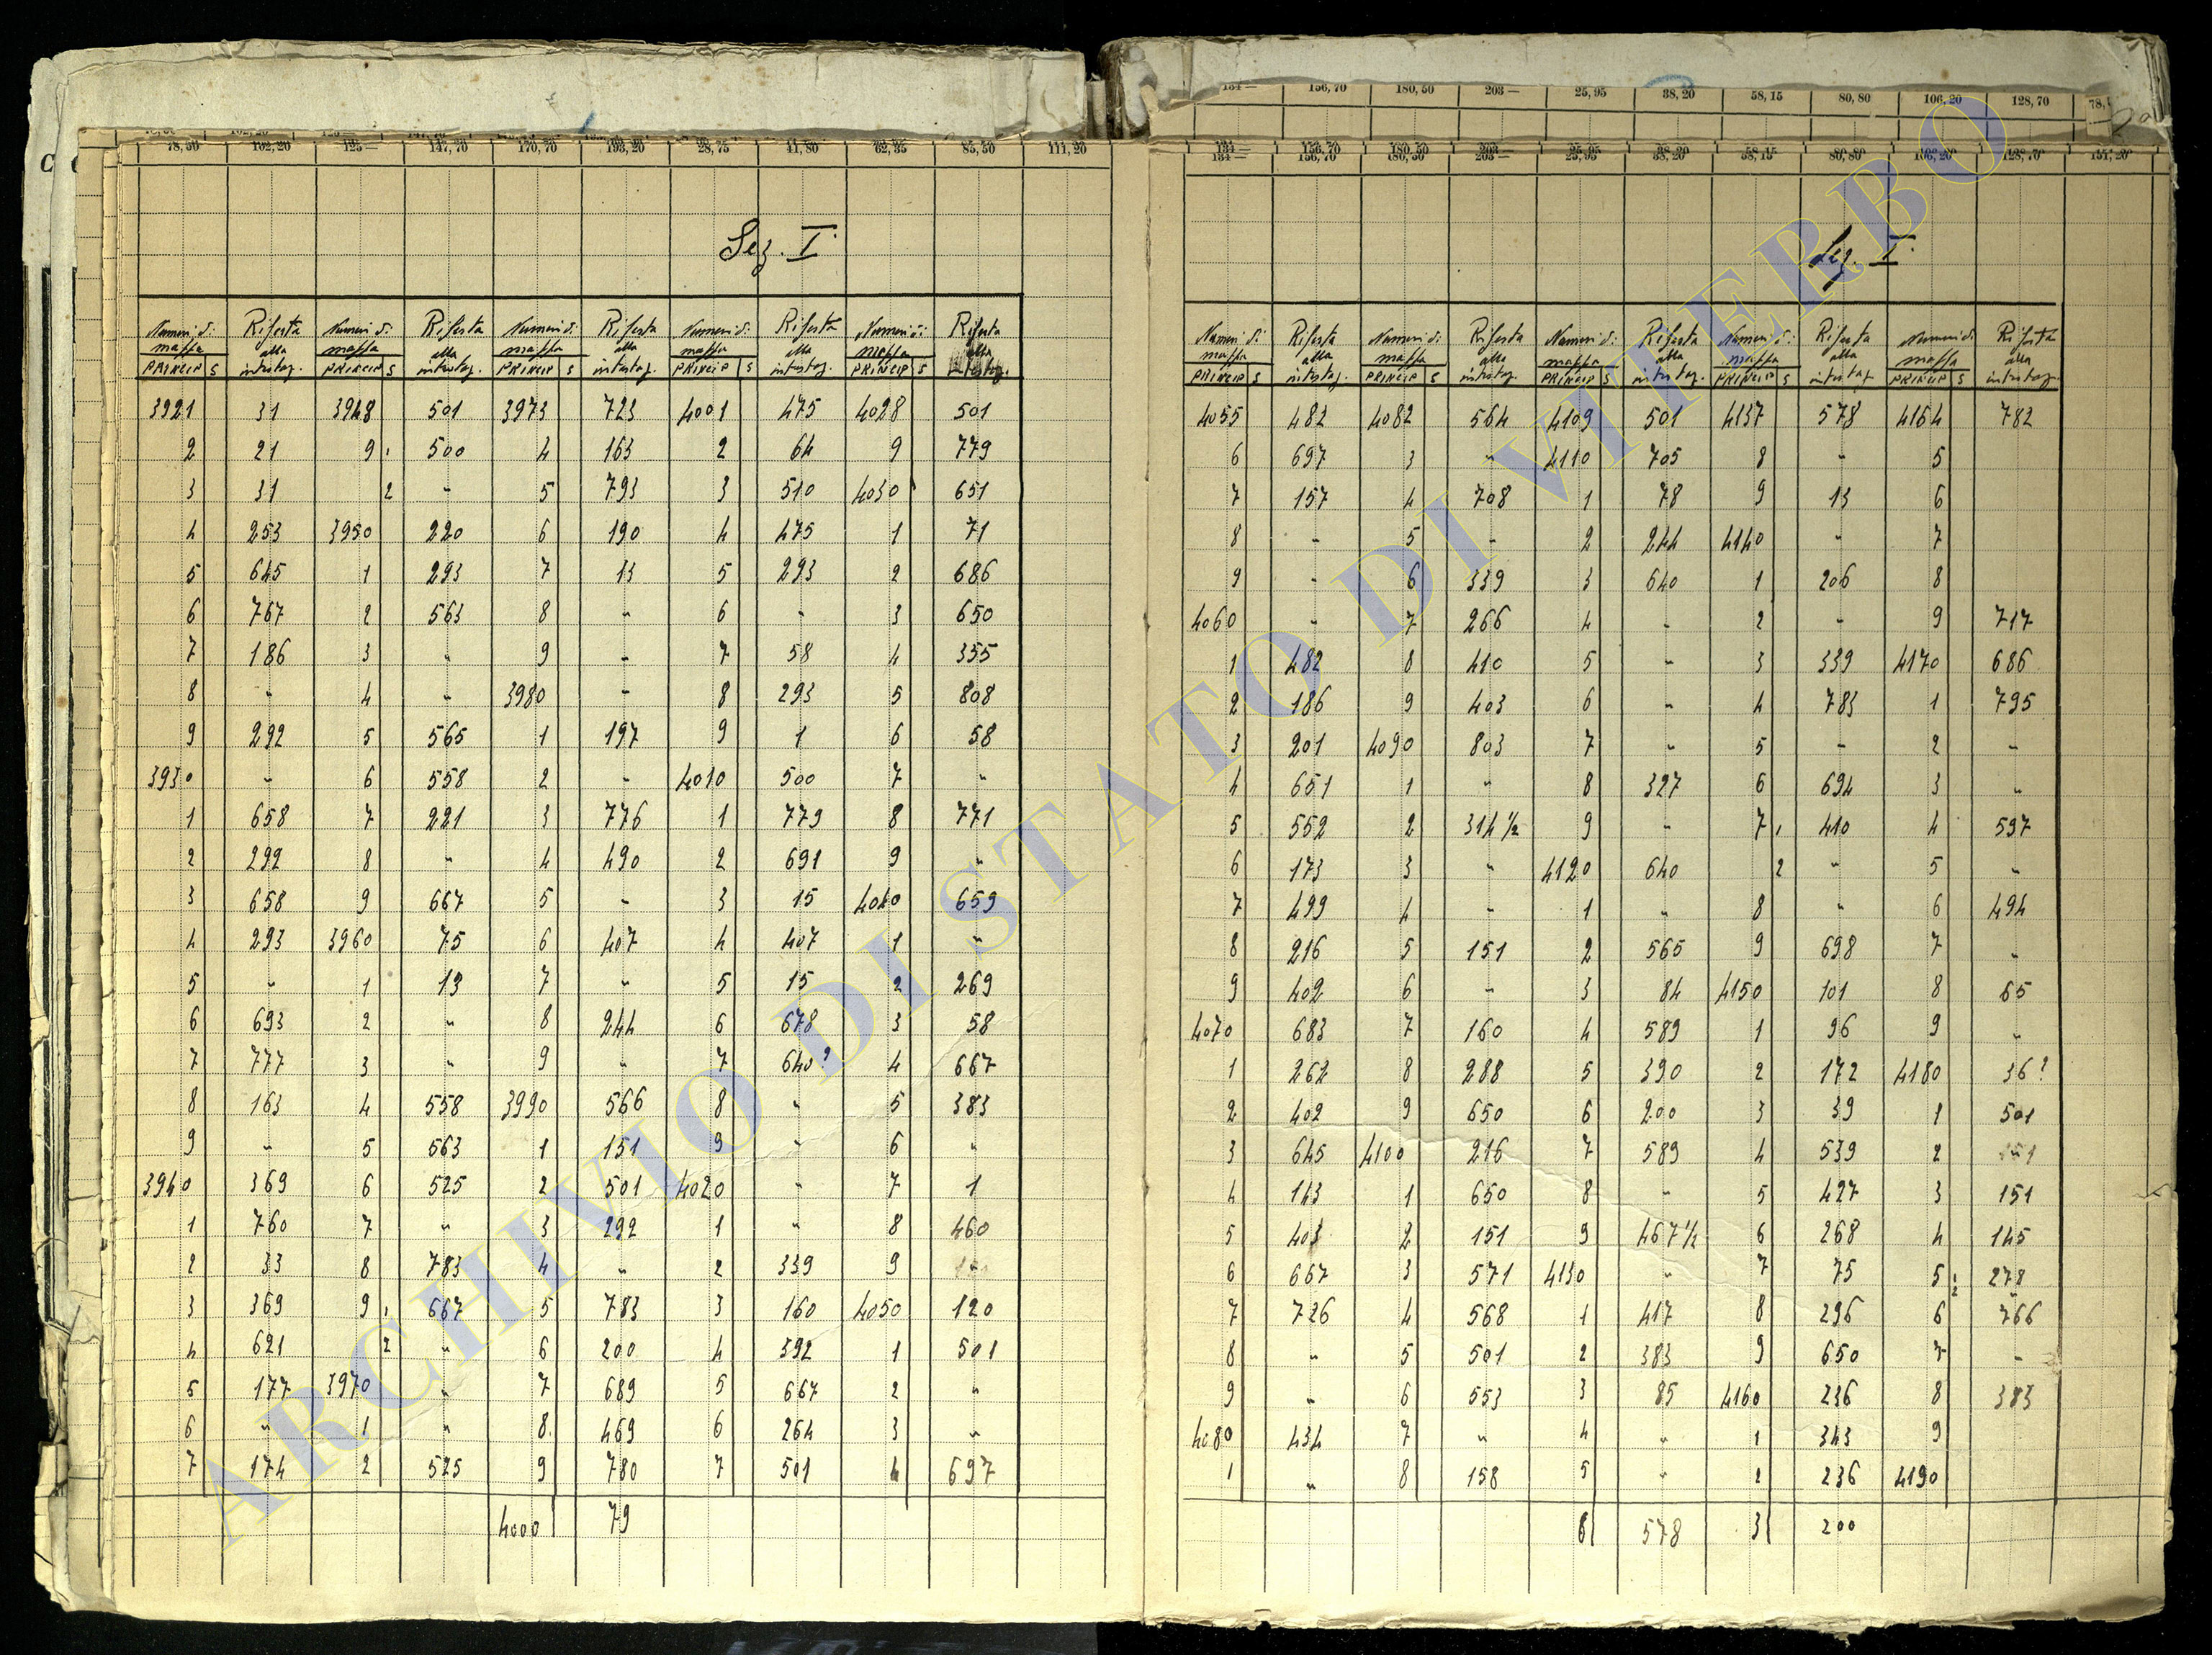 78,50 102,20 125— 147,70 170,70 193,20 28,75 41,80 62,35 85,50 111,20
Sez. I.
Numeri di mappa Riferta alla intestaz. Numeri di mappa Riferta alla intestaz. Numeri di mappa Riferta alla intestaz. Numeri di mappa Riferta alla intestaz. Numeri di mappa Riferta alla
PRINCIP S PRINCIP S PRINCIP S PRINCIP S PRINCIP S
3921 31 3948 501 3973 723 4001 475 4028 501
2 21 9 1 500 4 163 2 64 9 779
3 31 2 " 5 793 3 510 4030 651
4 253 3950 220 6 190 4 475 1 71
5 645 1 293 7 13 5 293 2 686
6 767 2 563 8 " 6 " 3 650
7 186 3 " 9 " 7 58 4 355
8 " 4 " 3980 " 8 293 5 808
9 292 5 565 1 197 9 1 6 58
3930 " 6 558 2 " 4010 500 7 "
1 658 7 221 3 776 1 779 8 771
2 292 8 " 4 490 2 691 9 "
3 658 9 667 5 " 3 15 4040 659
4 293 3960 75 6 407 4 407 1 "
5 " 1 13 7 " 5 15 2 269
6 693 2 " 8 244 6 678 3 58
7 777 3 " 9 " 7 640? 4 667
8 163 4 558 3990 566 8 " 5 383
9 " 5 563 1 151 9 " 6 "
3940 369 6 525 2 501 4020 " 7 1
1 760 7 " 3 292 1 " 8 460
2 33 8 783 4 " 2 339 9
3 369 9 1 667 5 783 3 160 4050 120
4 621 2 " 6 200 4 392 1 501
5 177 3970 " 7 689 5 667 2 "
6 " 1 " 8 469 6 264 3 "
7 174 2 525 9 780 7 501 4 697
4000 79
134— 156,70 180,50 203— 25,95 38,20 58,15 80,80 106,20 128,70 78,
134— 156,70 180,50 203— 25,95 38,20 58,15 80,80 106,20 128,70 151,20
Sez. I.
Numeri di mappa Riferta alla intestaz. Numeri di mappa Riferta alla intestaz. Numeri di mappa Riferta alla intestaz. Numeri di mappa Riferta alla intestaz. Numeri di mappa Riferta alla intestaz.
PRINCIP S PRINCIP S PRINCIP S PRINCIP S PRINCIP S
4055 482 4082 564 4109 501 4137 578 4164 782
6 697 3 " 4110 705 8 " 5
7 157 4 708 1 78 9 13 6
8 " 5 " 2 244 4140 " 7
9 " 6 339 3 640 1 206 8
4060 " 7 266 4 " 2 " 9 717
1 482 8 410 5 " 3 339 4170 686
2 186 9 403 6 " 4 783 1 795
3 201 4090 803 7 " 5 " 2 "
4 651 1 " 8 327 6 694 3 "
5 552 2 314½ 9 " 7 1 410 4 597
6 173 3 " 4120 640 2 " 5 "
7 499 4 " 1 " 8 " 6 494
8 216 5 151 2 565 9 698 7 "
9 402 6 " 3 84 4150 101 8 65
4070 683 7 160 4 589 1 96 9 "
1 262 8 288 5 390 2 172 4180 36?
2 402 9 650 6 200 3 39 1 501
3 645 4100 216 7 589 4 539 2
4 143 1 650 8 " 5 427 3 151
5 403 2 151 9 467½ 6 268 4 145
6 667 3 571 4130 " 7 75 5 1 278
2 "
7 726 4 568 1 417 8 296 6 766
8 " 5 501 2 383 9 650 7 "
9 " 6 553 3 85 4160 236 8 383
4080 434 7 " 4 " 1 343 9
1 " 8 158 5 " 2 236 4190
6 578 3 200
ARCHIVIO DI STATO DI VITERBO